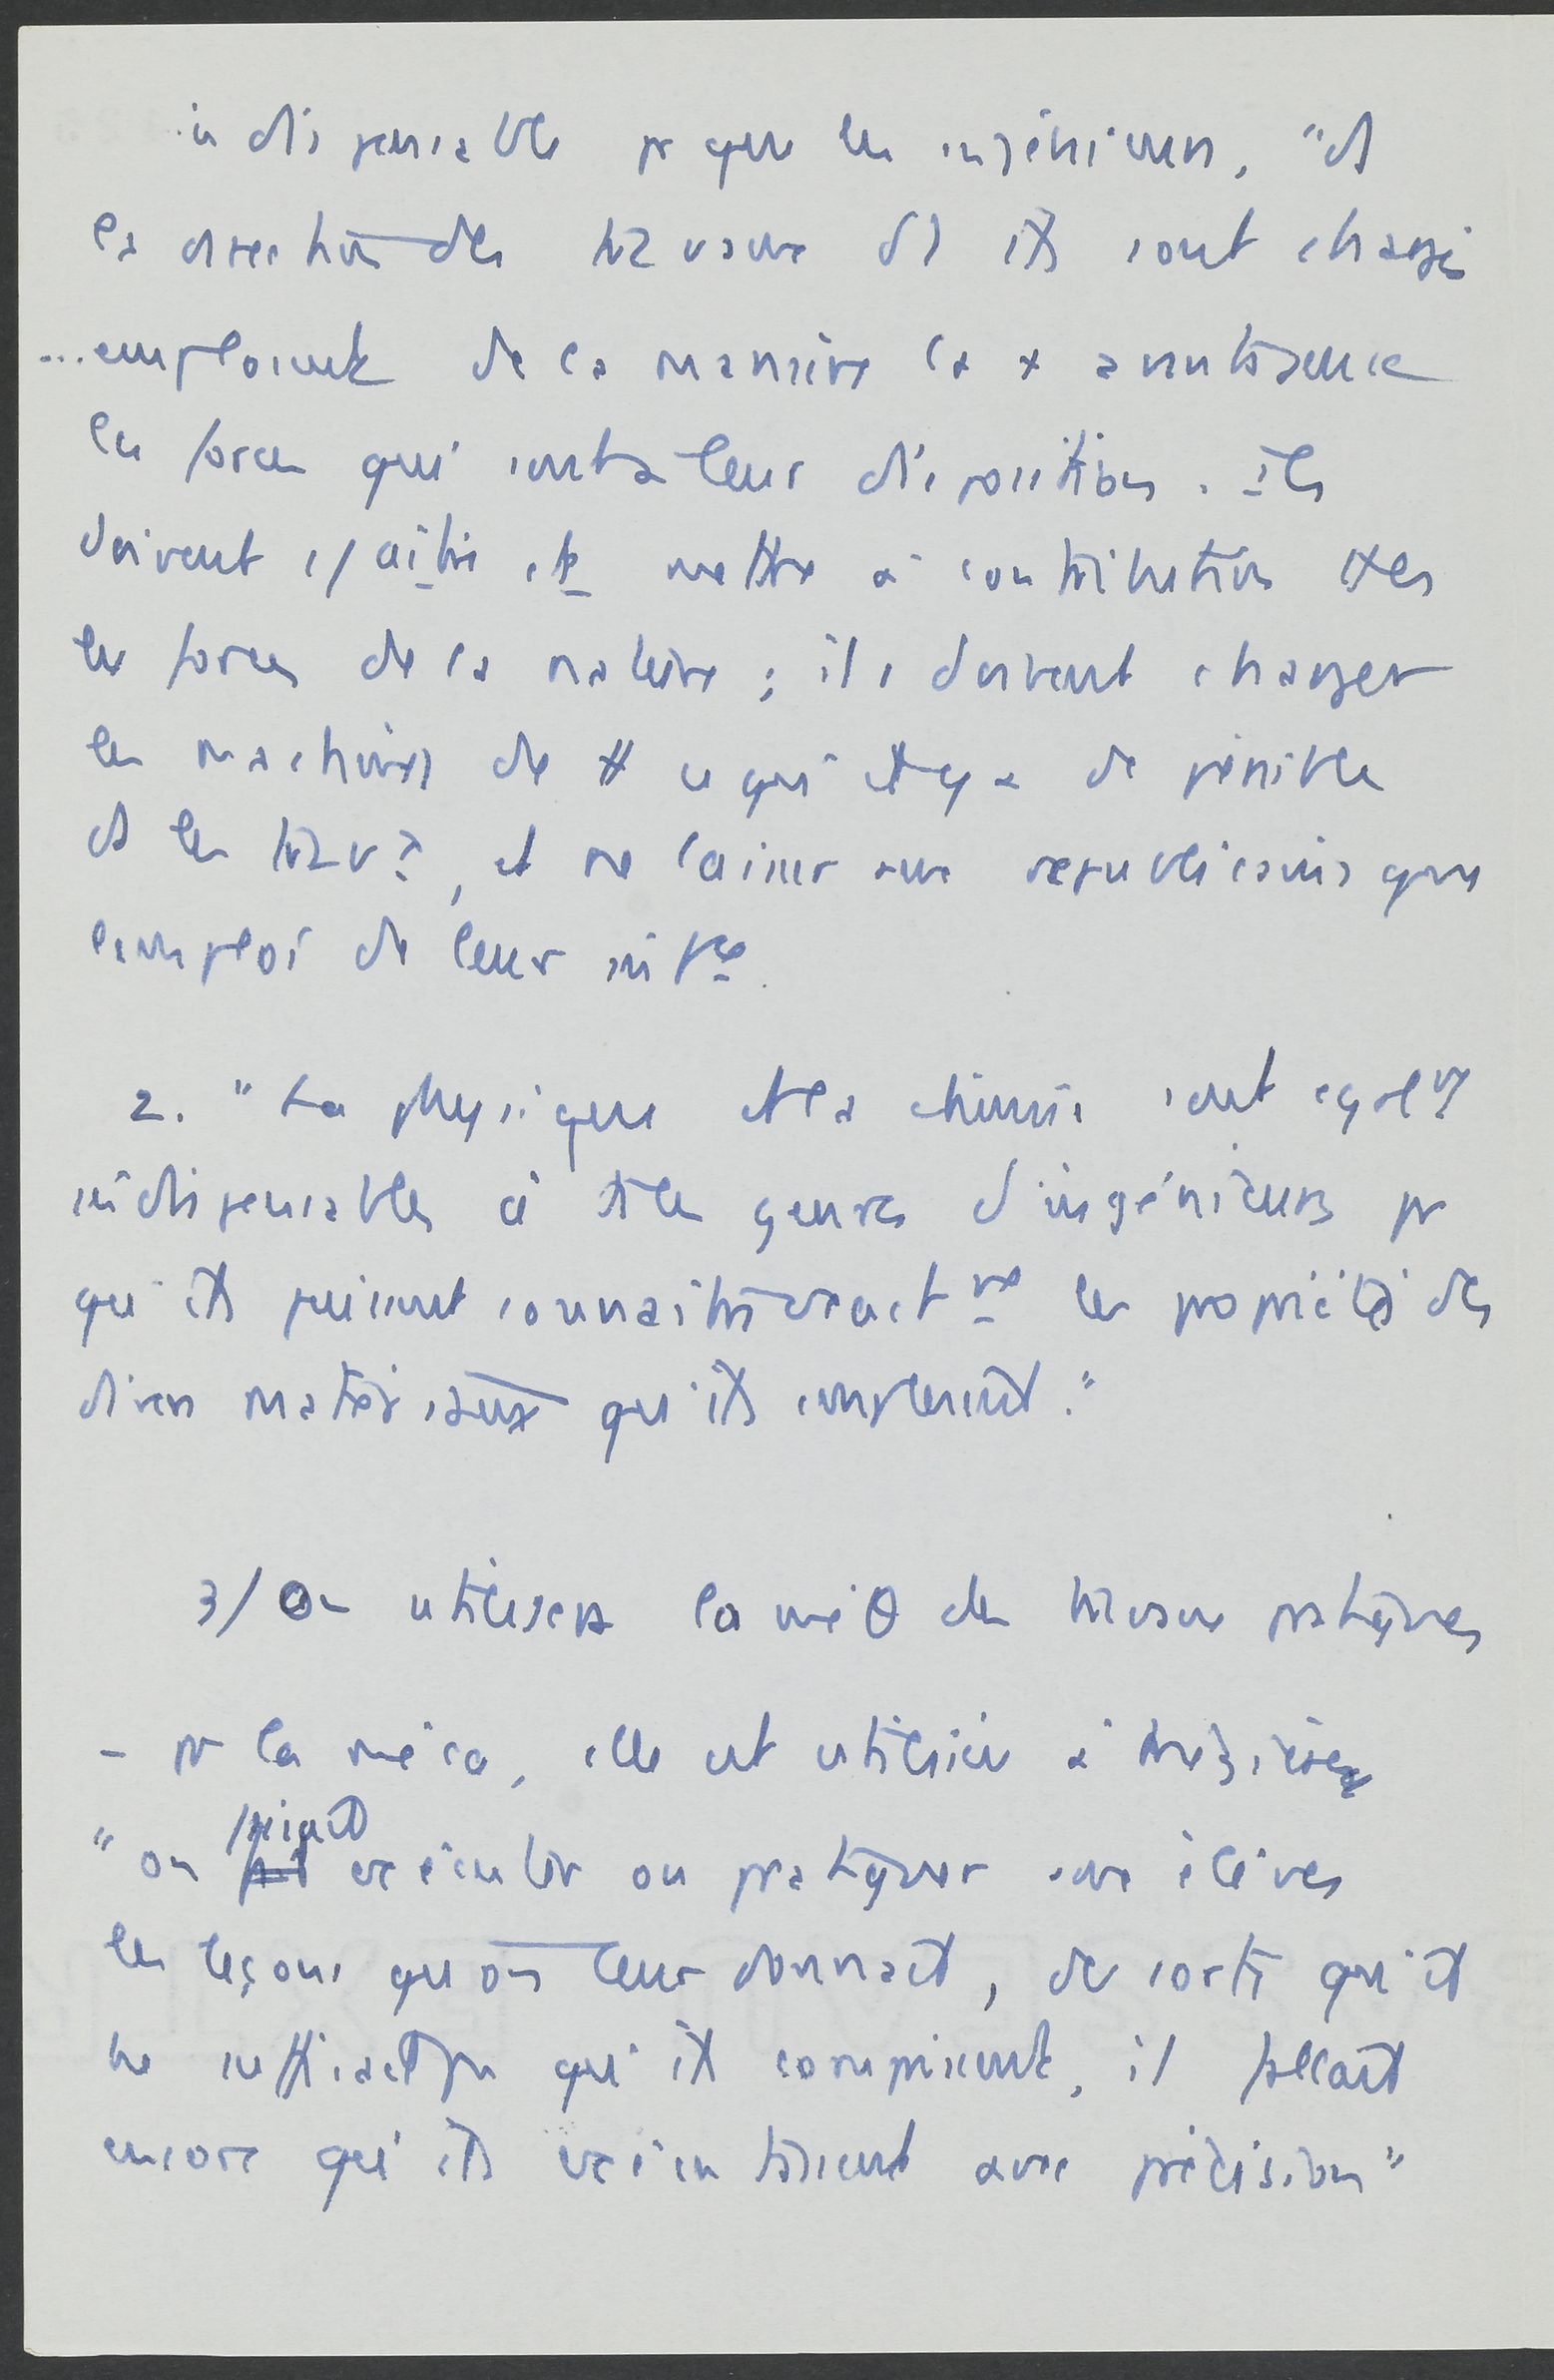 indispensable pr que les ingénieurs, "ds
la direction des travaux dt ils sont chargés
...emploient de la manière la + avantageuse
les forces qui sont à leur disposition. Ils
doivent connaître et mettre à contribution ttes
les forces de la nature ; ils doivent charger
les machines de tt ce qui il y a de pénible
ds les trav?, et ne laisser aux républicains que
l'emploi de leur
2. "La physique et la chimie sont égalmt
indispensables à ts les genres d'ingénieurs pr
qu'ils puissent connaître exactmt les propriétés des
divers matériaux qu'ils emploient."
3/ On utilisera la méθ des travaux pratiques
- pr la méca, elle est utilisée à Mézières
"on faisait exécuter ou pratiquer aux élèves
les leçons qu'on leur donnait, de sorte qu'il
ne suffisait pas qu'ils comprissent, il fallait
encore qu'ils exécutassent avec précision"